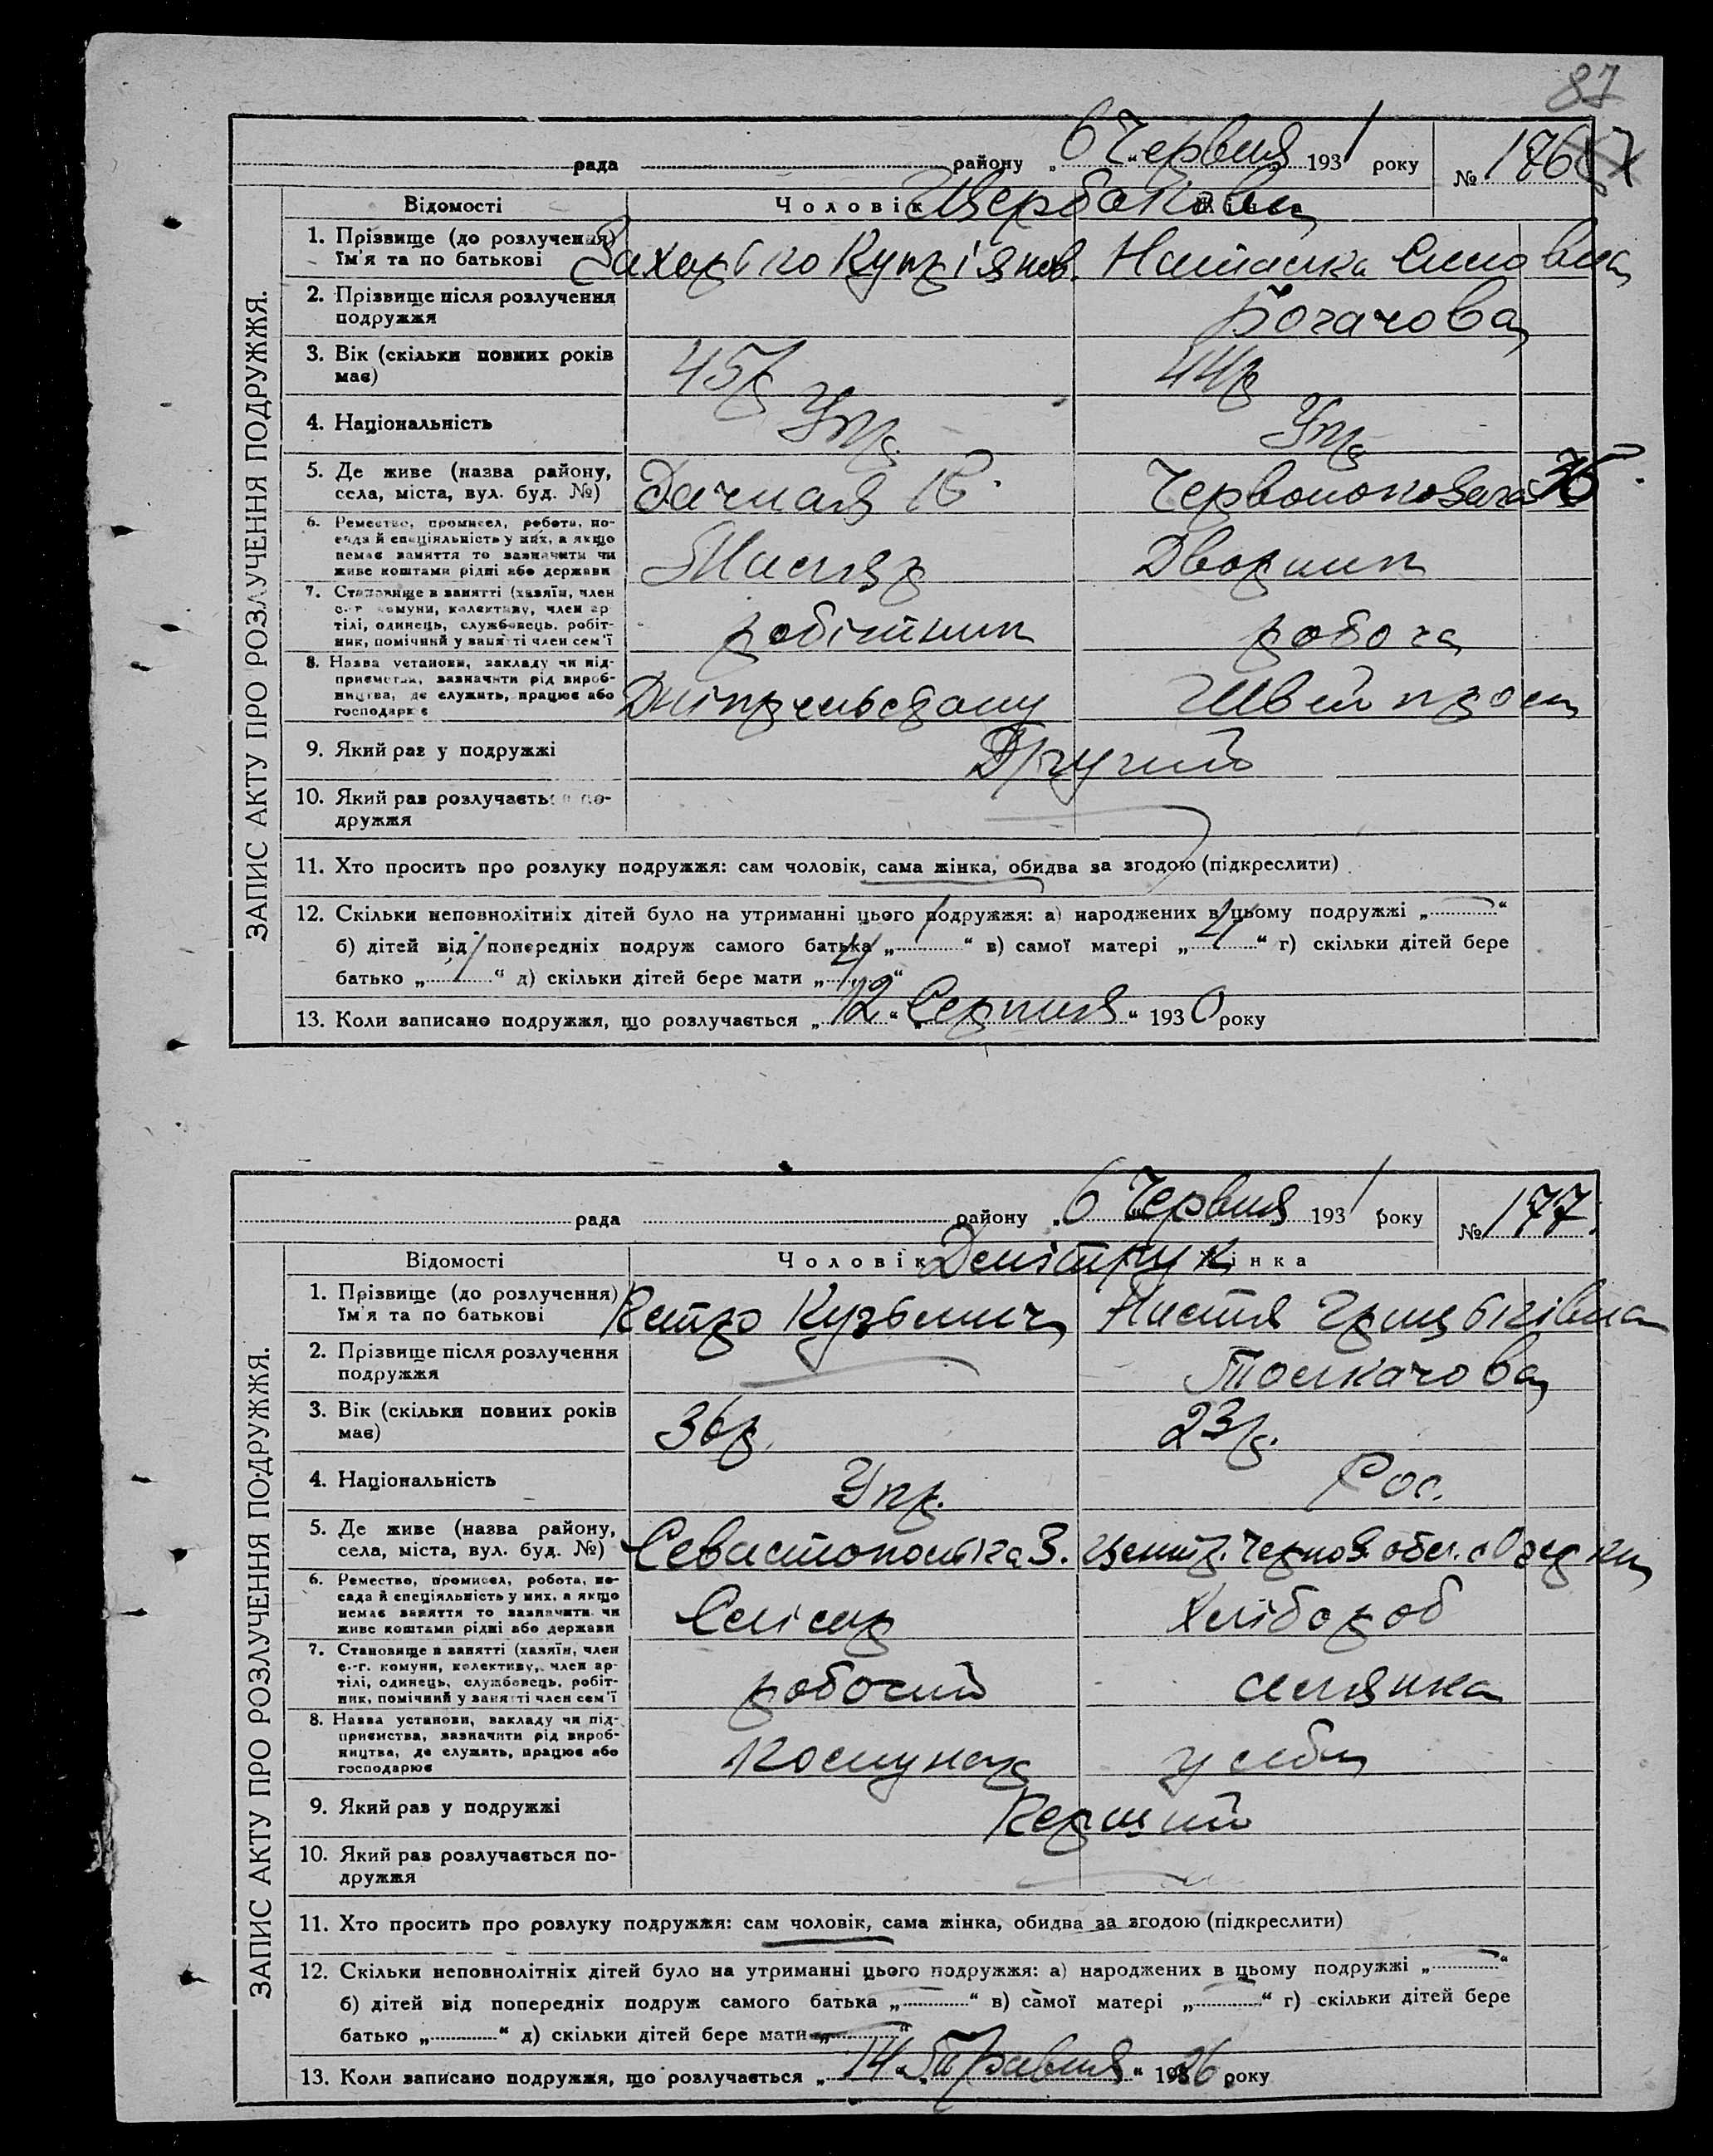 87
рада району „6“ Червня 1931 року № 176
ЗАПИС АКТУ ПРО РОЗЛУЧЕННЯ ПОДРУЖЖЯ.
Відомості Чоловік Щербакови
1. Прізвище (до розлучення) ім'я та по батькові Захарько Купріянов. Наталка
2. Прізвище після розлучення подружжя Богачова
3. Вік (скільки повних років має) 45р 44р
4. Національність Укр. Укр.
5. Де живе (назва району, села, міста, вул. буд. №) Дачная
6. Ремество, промисел, робота, посада й спеціяльність у них, а якщо немає заняття то зазначити чи живе коштами рідні або держави Маляр Дворник
7. Становище в занятті (хазяїн, член с.-г. комуни, колективу, член артілі, одинець, службовець, робітник, помічний у занятті член сем'ї робітник робоча
8. Назва установи, закладу чи підприємства, зазначити рід виробництва, де служить, працює або господарює Швей пром
9. Який раз у подружжі Другий
10. Який раз розлучається подружжя
11. Хто просить про розлуку подружжя: сам чоловік, сама жінка, обидва за згодою (підкреслити)
12. Скільки неповнолітніх дітей було на утриманні цього подружжя: а) народжених в цьому подружжі „—“
б) дітей від попередніх подруж самого батька „1“ в) самої матері „4“ г) скільки дітей бере
батько „1“ д) скільки дітей бере мати „4“
13. Коли записано подружжя, що розлучається „12“ „Серпня“ 1930 року
рада району „6“ Червня 1931 року № 177
ЗАПИС АКТУ ПРО РОЗЛУЧЕННЯ ПОДРУЖЖЯ.
Відомості Чоловік Дмітрук Жінка
1. Прізвище (до розлучення) ім'я та по батькові Петро Кузьмич Настя Грицьківна
2. Прізвище після розлучення подружжя — Толкачова
3. Вік (скільки повних років має) 36р. 23р.
4. Національність Укр. Рос.
5. Де живе (назва району, села, міста, вул. буд. №) Севастопольска 3. Центр. Чернозе. обл.
6. Ремество, промисел, робота, посада й спеціяльність у них, а якщо немає заняття то зазначити чи живе коштами рідні або держави Слісар Хлібороб
7. Становище в занятті (хазяїн, член с.-г. комуни, колективу, член артілі, одинець, службовець, робітник, помічний у занятті член сем'ї робочий селянка
8. Назва установи, закладу чи підприємства, зазначити рід виробництва, де служить, працює або господарює Комунар у себе
9. Який раз у подружжі Перший
10. Який раз розлучається подружжя —
11. Хто просить про розлуку подружжя: сам чоловік, сама жінка, обидва за згодою (підкреслити)
12. Скільки неповнолітніх дітей було на утриманні цього подружжя: а) народжених в цьому подружжі „—“
б) дітей від попередніх подруж самого батька „—“ в) самої матері „—“ г) скільки дітей бере
батько „“ д) скільки дітей бере мати „—“
13. Коли записано подружжя, що розлучається „14“ „Травня“ 1926 року